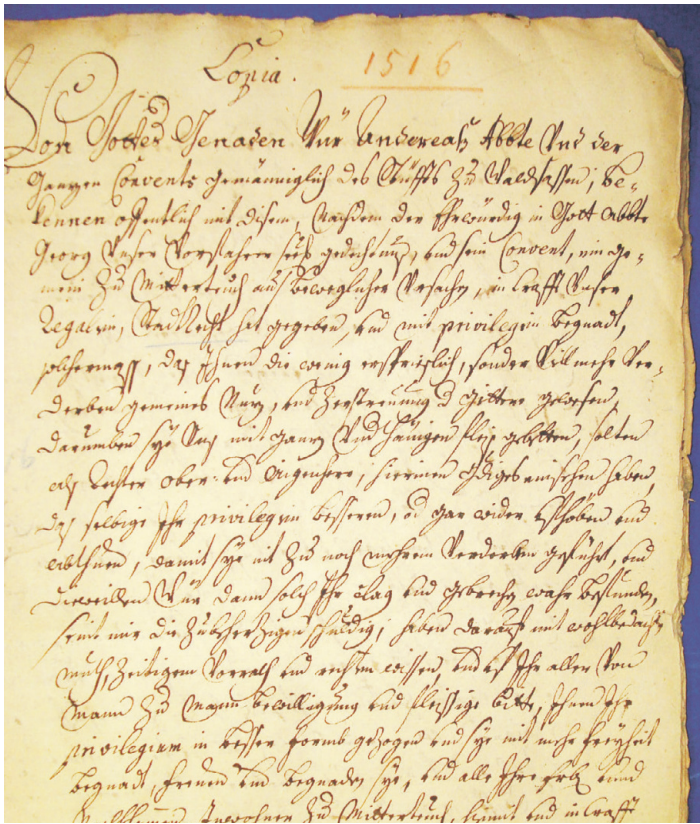 Copia. 1516
Von Gottes Genaden Wür Andereaß Abbte Vnd der
Ganzen Convents gemäniglich des Stüffts Zu Waldsassen, be-
kennen offentlich mit disem, Nachdem der Ehrwürdig in Gott Abbte
Georg Vnser Vorfahrer seel: gedechtnuß, und sein Convent, ein ge-
mein Zu Mitterteuch aus beweglicher Vrsachen, in Crafft Vnser
Regalien, Stadtrecht hat gegeben, und mit privilegien begnadt,
solchermass, daß Ihnen die wenig erspreislich, sonder Villmehr Ver-
derben gemeines Nuz, und Zerstreuung d Gütter gewesen,
darumben sye Vns mit ganz Vnd fleis gebetten, solten
als Rechter ober- und Aigenherr, hierinen haben,
daß selbige Ihr privilegien besseren, od gar wider und
abthuen, damit sye nit Zu noch mehrem Verderben geführt, und
dieweillen Wür dann solch Ihr Clag und gebrechen wahr befunden,
seint wir die schuldig, haben darauf mit wohlbedachten
mueth, Zeitigem Vorrath und rechtem wissen, und Ihr aller Von
Mann Zu Mann bewilligung und fleissige bitte, Ihnen Ihr
privilegium in besser formb gezogen und sye mit mehr freyheit
begnadt, freyen und begnaden sye, und alle Ihre Erb und
Nachkommen Inwohner Zu Mitterteuch, hiemit und in Crafft